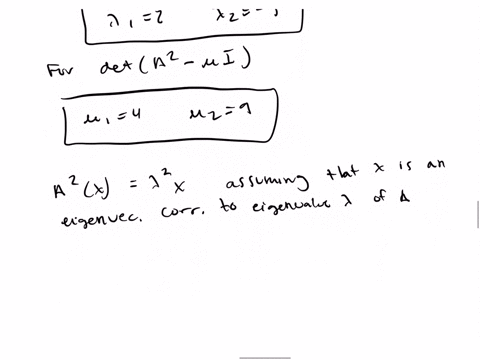 λ₁=2
For det(A² - μI)
μ₁=4 μ₂=9
A²(x) = λ²x assuming that x is an
eigenvec. corr. to eigenvalue λ of A